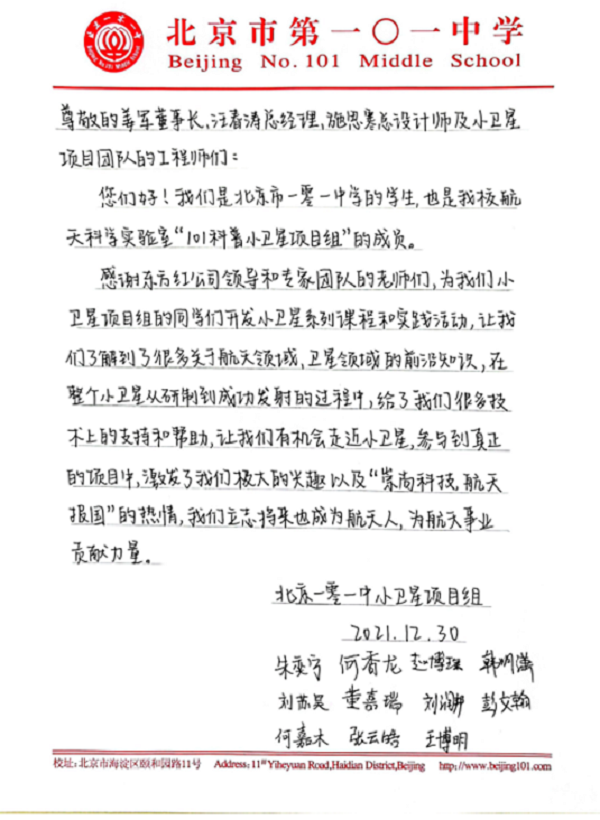 北京一零一中
北京市第一〇一中学
Beijing No. 101 Middle School
尊敬的姜军董事长、汪春涛总经理、施思寒总设计师及小卫星
项目团队的工程师们：
您们好！我们是北京市一零一中学的学生，也是我校航
天科学实验室“101科普小卫星项目组”的成员。
感谢东方红公司领导和专家团队的老师们，为我们小
卫星项目组的同学们开发小卫星系列课程和实践活动，让我
们了解到了很多关于航天领域，卫星领域的前沿知识，在
整个小卫星从研制到成功发射的过程中，给了我们很多技
术上的支持和帮助，让我们有机会走近小卫星，参与到真正
的项目中，激发了我们极大的兴趣以及“崇尚科技，航天
报国”的热情，我们立志将来也成为航天人，为航天事业
贡献力量。
北京一零一中小卫星项目组
2021.12.30
朱奕宁 何香龙 赵博理 韩明
刘苏昊 董嘉瑞 刘 彭文翰
何嘉木 张云皓 王博明
校址：北京市海淀区颐和园路11号 Address: 11# Yiheyuan Road,Haidian District,Beijing http://www.beijing101.com